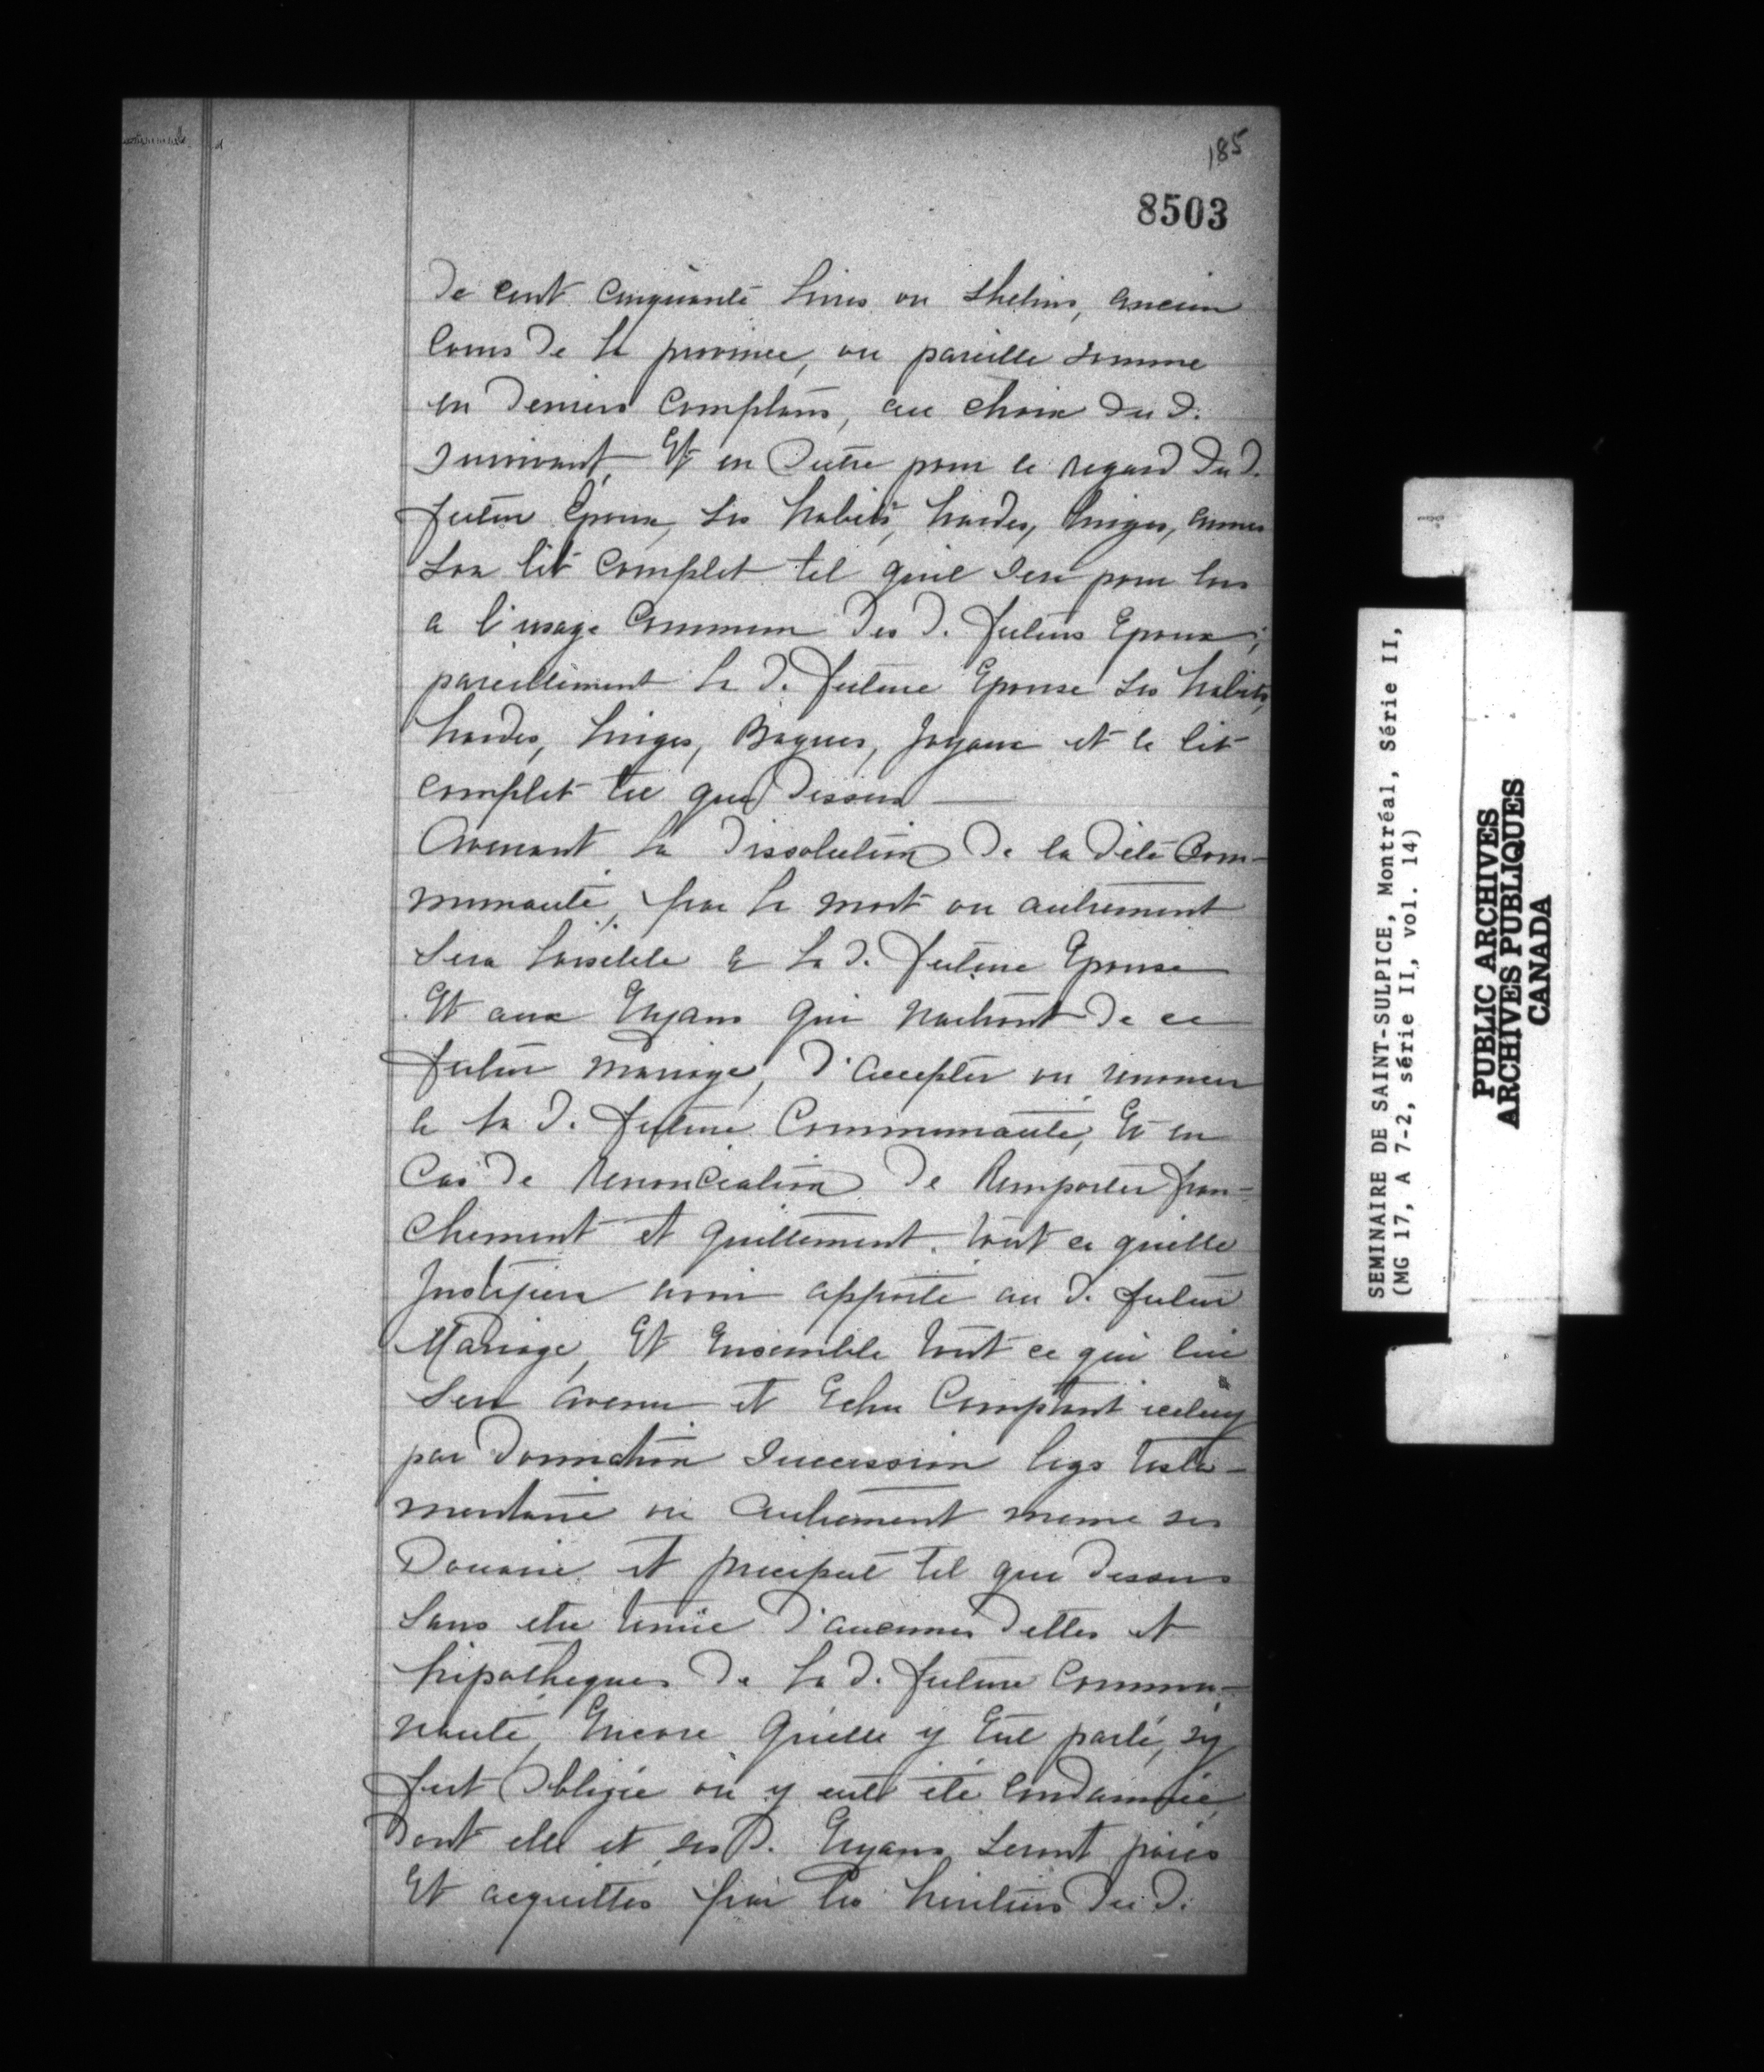 185
8503
de cent cinquante livres ou shelins, ancien
Cours de la province, ou pareille somme
en deniers Comptans, au choix du d.
Survivant, Et en Outre pour le regard du d.
futur Epoux, ses habits, hardes, linges, armes
son lit complet tel qu'il sera pour lors
a l'usage Commun des d. futurs Epoux;
pareillement la d. future Epouse ses habits,
hardes, linges, Bagues, Joyaux et le lit
complet tel que dessus —
Avenant la dissolution de la dite Com-
munauté, par la mort ou autrement
sera loisible a la d. future Epouse
Et aux Enfans qui naitront de ce
futur mariage, d'accepter ou renoncer
a la d. future Communauté, Et en
Cas de Renonciation de Remporter fran-
chement et quittement tout ce quelle
Justifiera avoir apporté au d. futur
Mariage, Et Ensemble tout ce qui lui
sera avenu et Echu Comptant iceluy
par donnation succession legs testa-
mentaire ou autrement meme ses
Douaire et preciput tel que dessus
sans etre tenüe d'aucunes dettes et
hipotheques de la d. future Commu-
nauté, Encore qu'elle y Eut parlé, s'y
fut Obligée ou y eut été Condamnée,
Dont elle et ses d. Enfans seront
Et acquittés par les heritiers du d.
SEMINAIRE DE SAINT-SULPICE, Montréal, Série II,
(MG 17, A 7-2, série II, vol. 14)
PUBLIC ARCHIVES
ARCHIVES PUBLIQUES
CANADA